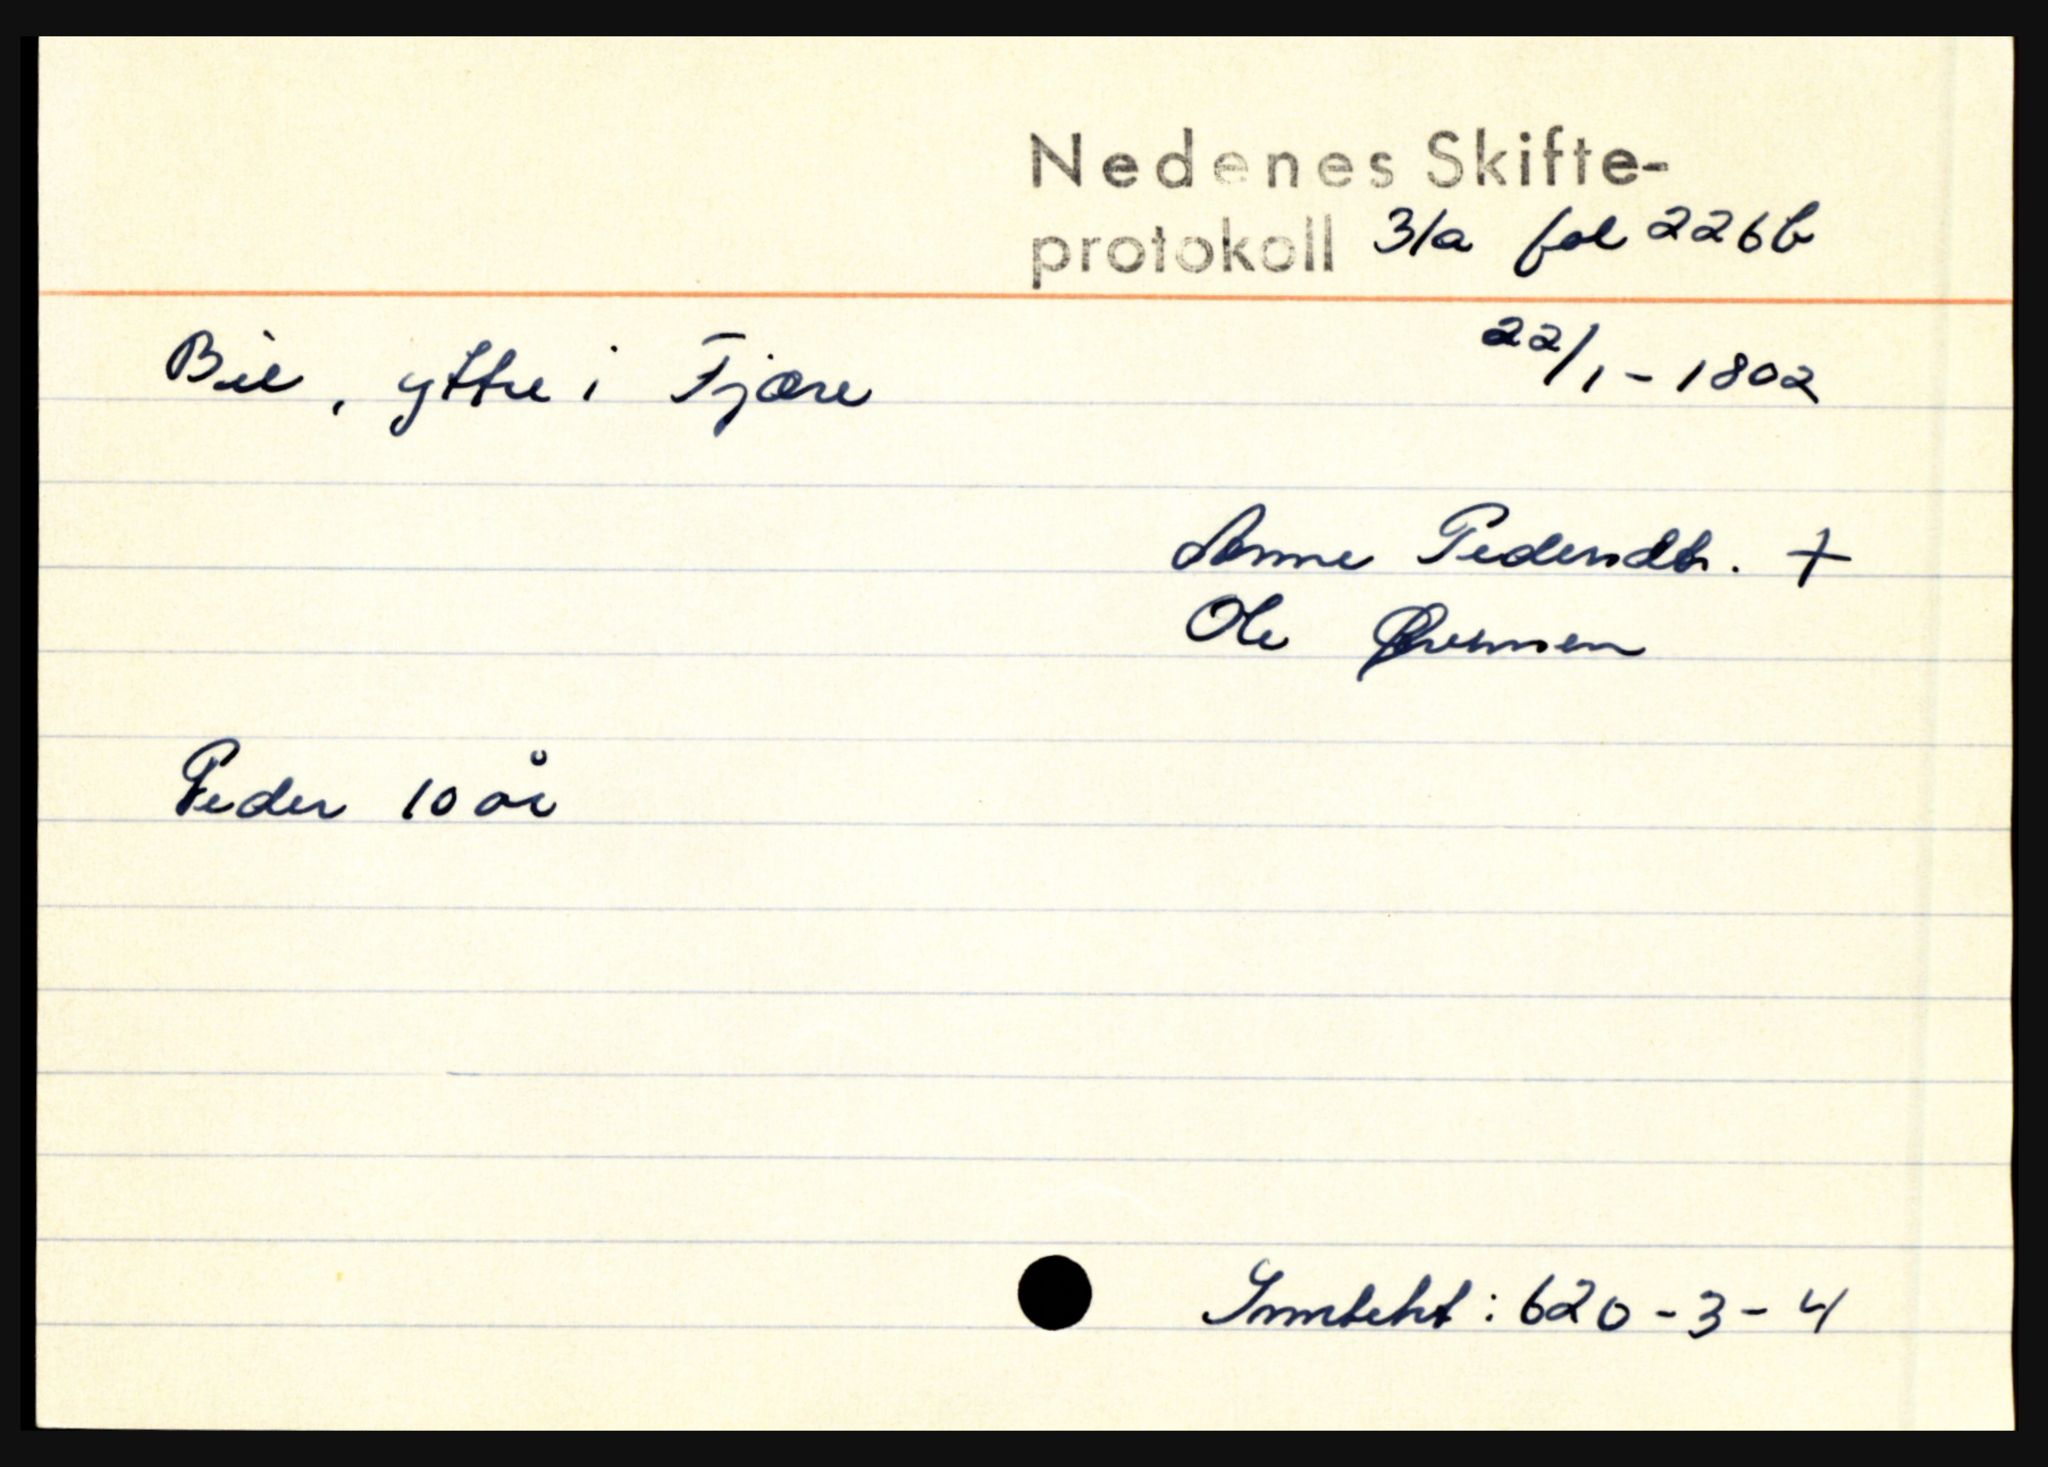 Nedenes Skifte-
protokoll 31a fol 226b
Bie, yttre i Fjære 22/1-1802
Anne Pedersdtr. +
Ole
Peder 10 år
Inntekt: 620-3-4